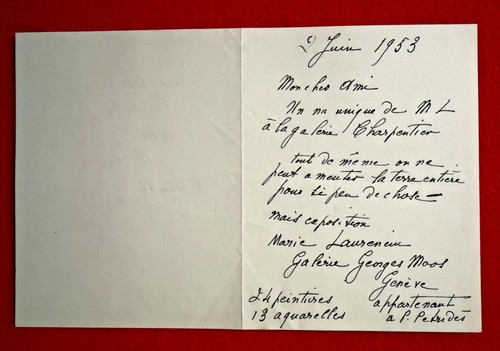 2 Juin 1953
Mon cher Ami
Un nu unique de M L
à la galerie Charpentier
tout de même on ne
peut ameuter la terre entière
pour si peu de chose —
mais exposition
Marie Laurencin
Galerie Georges Moos
Genève
24 peintures appartenant
13 aquarelles à P. Petridès